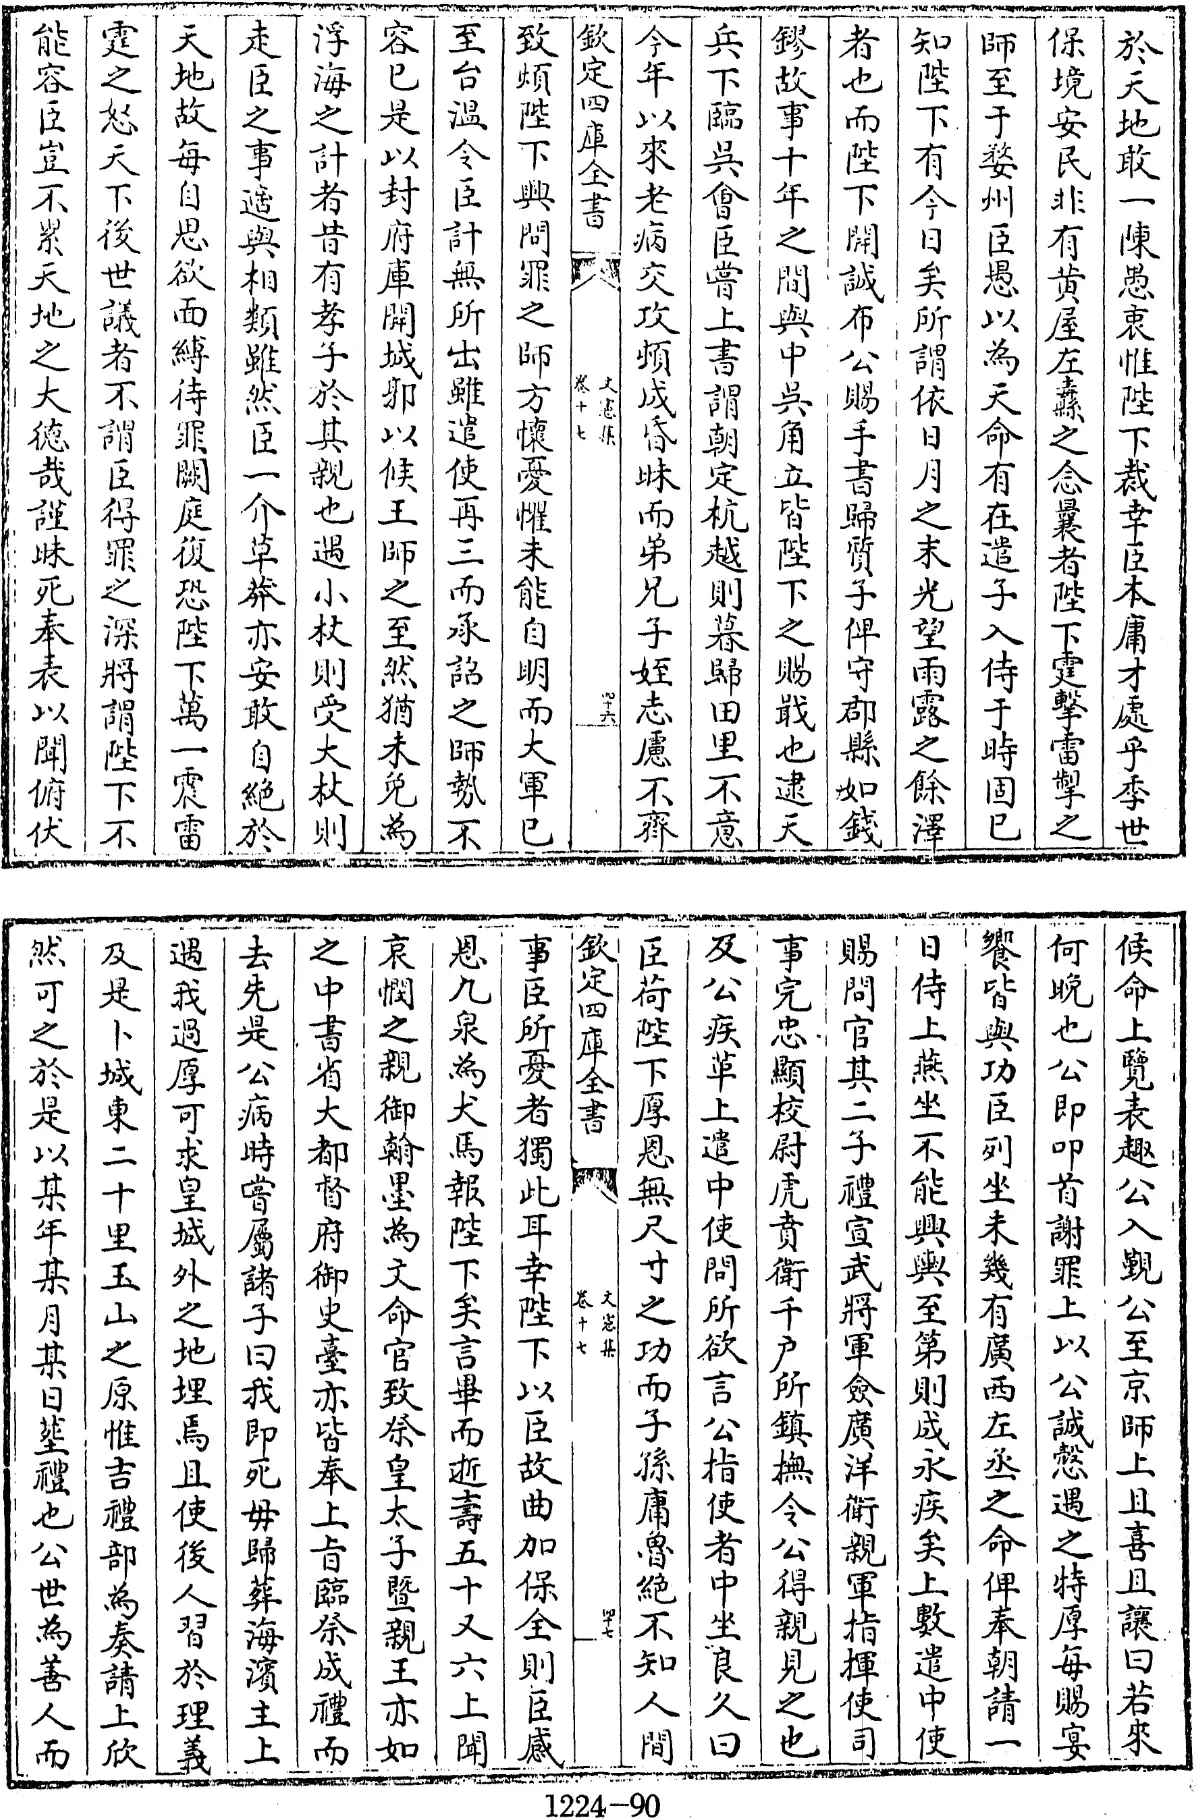 於天地敢一陳愚衷惟陛下裁幸臣本庸才處乎季世
保境安民非有黄屋左纛之念曩者陛下霆擊雷掣之
師至于婺州臣愚以為天命有在遣子入侍于時固已
知陛下有今日矣所謂依日月之末光望雨露之餘澤
者也而陛下開誠布公賜手書歸質子俾守郡縣如錢
鏐故事十年之間與中吳角立皆陛下之賜戢也逮天
兵下臨吳會臣嘗上書謂朝定杭越則暮歸田里不意
今年以來老病交攻頓成昏眛而弟兄子姪志慮不齊
欽定四庫全書
文憲集
卷十七
四十六
致煩陛下興問罪之師方懷憂懼未能自明而大軍已
至台温令臣計無所出雖遣使再三而承詔之師勢不
容已是以封府庫開城郭以候王師之至然猶未免為
浮海之計者昔有孝子於其親也遇小杖則受大杖則
走臣之事適與相類雖然臣一介草莽亦安敢自絶於
天地故每自思欲而縛待罪闕庭復恐陛下萬一震雷
霆之怒天下後世議者不謂臣得罪之深將謂陛下不
能容臣豈不累天地之大德哉謹昧死奉表以聞俯伏
候命上覽表趣公入覲公至京師上且喜且讓曰若來
何晩也公即叩首謝罪上以公誠慤遇之特厚每賜宴
饗皆與功臣列坐未幾有廣西左丞之命俾奉朝請一
日侍上燕坐不能興輿至第則成永疾矣上數遣中使
賜問官其二子禮宣武將軍僉廣洋衛親軍指揮使司
事完忠顯校尉虎賁衛千户所鎮撫令公得親見之也
及公疾革上遣中使問所欲言公指使者中坐良久曰
臣荷陛下厚恩無尺寸之功而子孫庸魯絶不知人間
欽定四庫全書
文憲集
卷十七
四十七
事臣所憂者獨此耳幸陛下以臣故曲加保全則臣感
恩九泉為犬馬報陛下矣言畢而逝壽五十又六上聞
哀憫之親御翰墨為文命官致祭皇太子暨親王亦如
之中書省大都督府御史臺亦皆奉上旨臨祭成禮而
去先是公病時嘗屬諸子曰我即死毋歸葬海濱主上
遇我過厚可求皇城外之地埋焉且使後人習於理義
及是卜城東二十里玉山之原惟吉禮部為奏請上欣
然可之於是以某年某月某日塟禮也公世為善人而
1224-90